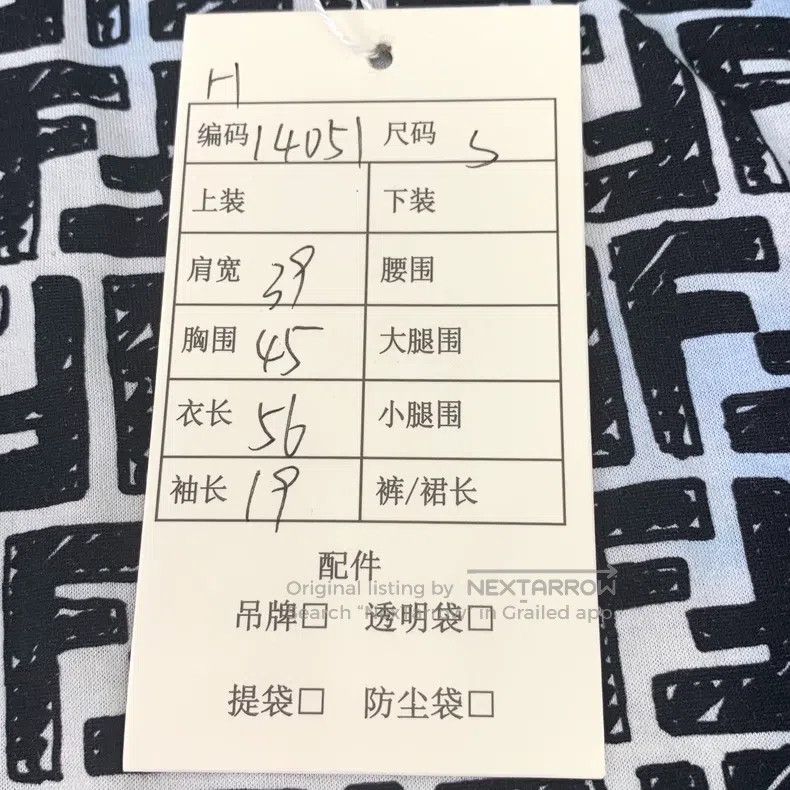 H
编码 14051 尺码 S
上装 下装
肩宽 39 腰围
胸围 45 大腿围
衣长 56 小腿围
袖长 19 裤/裙长
配件
Original listing by NEXTARROW
吊牌□ 透明袋□
Search "Nextarrow" in Grailed app
提袋□ 防尘袋□